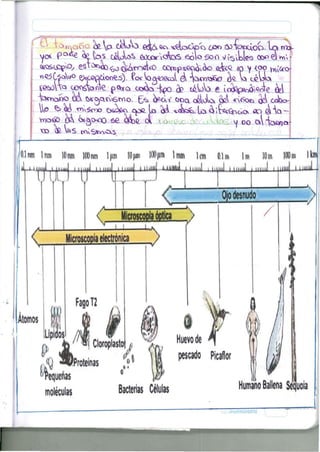 El tamaño de la célula está en relación con su función. La ma-
yor parte de las células eucariotas solo son visibles con el mi-
croscopio, estando su diámetro comprendido entre 10 y 100 micro-
nes (salvo excepciones). Por lo general el tamaño de la célula
resulta constante para cada tipo de célula e independiente del
tamaño del organismo. Es decir una célula del riñon del caba-
llo es del mismo orden que la del ratón. La diferencia en el ta-
maño del órgano se debe al y no al tama-
ño de las mismas
0.1 nm 1 nm 10 nm 100 nm 1 µm 10 µm 100 µm 1 mm 1 cm 0.1 m 1 m 10 m 100 m 1 km
Ojo desnudo
Microscopía óptica
Microscopía electrónica
Fago T2
Átomos
Lípidos
Cloroplasto
Huevo de
pescado
Picaflor
Proteínas
Pequeñas
moléculas
Bacterias
Células
Humano
Ballena
Sequoia